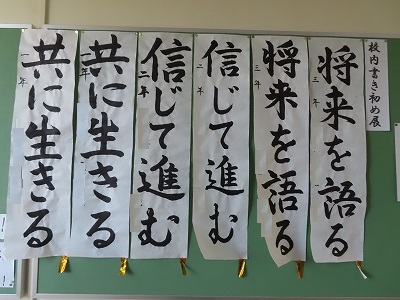 校内書き初め展
将来を語る
三年
将来を語る
三年
信じて進む
二年
信じて進む
二年
共に生きる
一年
共に生きる
一年